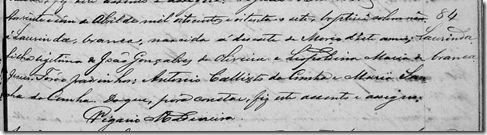 Aos vinte e um de Abril de mil oitocentos e oitenta e sete, baptisei solemne 84
a Laurinda, branca, nascida a dezesete de Março d'este anno, Laurinda
filha legitima de João Gonçalves de Oliveira e Leopoldina Maria de branca
Jesus. Forão padrinhos: Antonio Callixto da Cunha e Maria
da Cunha. Do que, para constar, fiz este assento e assigno.
Vigario